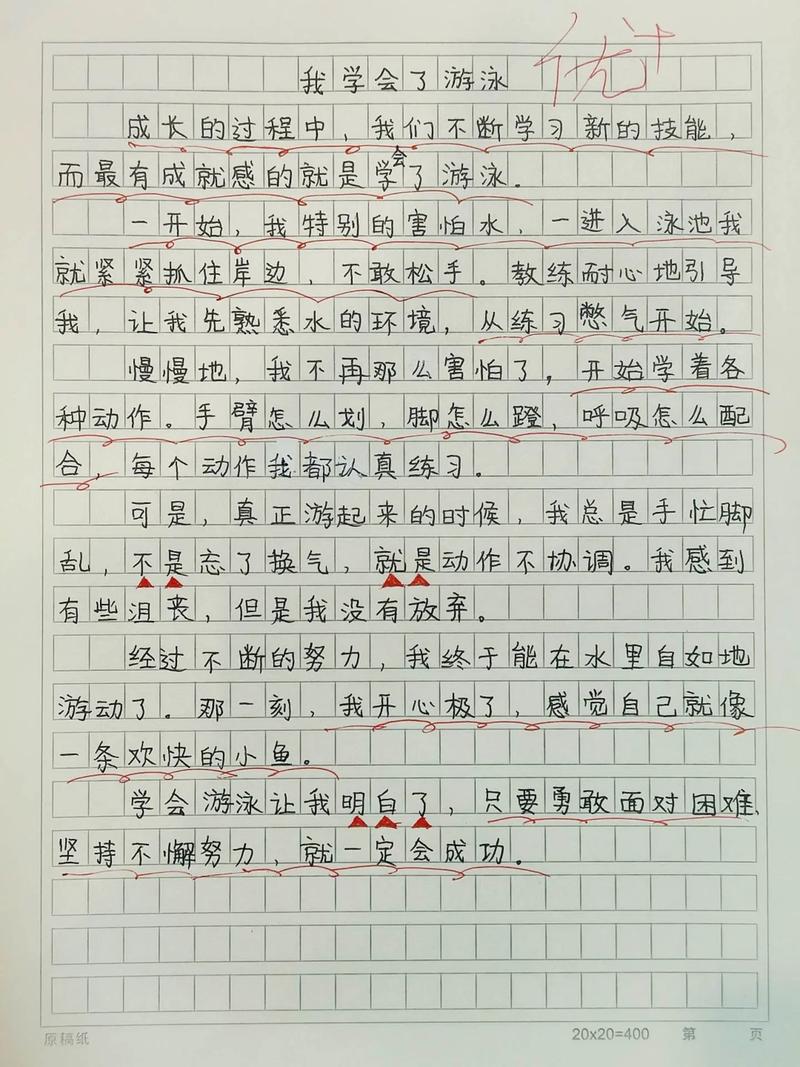 我学会了游泳
优+
成长的过程中，我们不断学习新的技能，
而最有成就感的就是学会了游泳．
一开始，我特别的害怕水，一进入泳池我
就紧紧抓住岸边，不敢松手。教练耐心地引导
我，让我先熟悉水的环境，从练习憋气开始。
慢慢地，我不再那么害怕了，开始学着各
种动作。手臂怎么划，脚怎么蹬，呼吸怎么配
合，每个动作我都认真练习。
可是，真正游起来的时候，我总是手忙脚
乱，不是忘了换气，就是动作不协调。我感到
有些沮丧，但是我没有放弃。
经过不断的努力，我终于能在水里自如地
游动了。那一刻，我开心极了，感觉自己就像
一条欢快的小鱼。
学会游泳让我明白了，只要勇敢面对困难、
坚持不懈努力，就一定会成功。
原稿纸 20x20=400 第 页